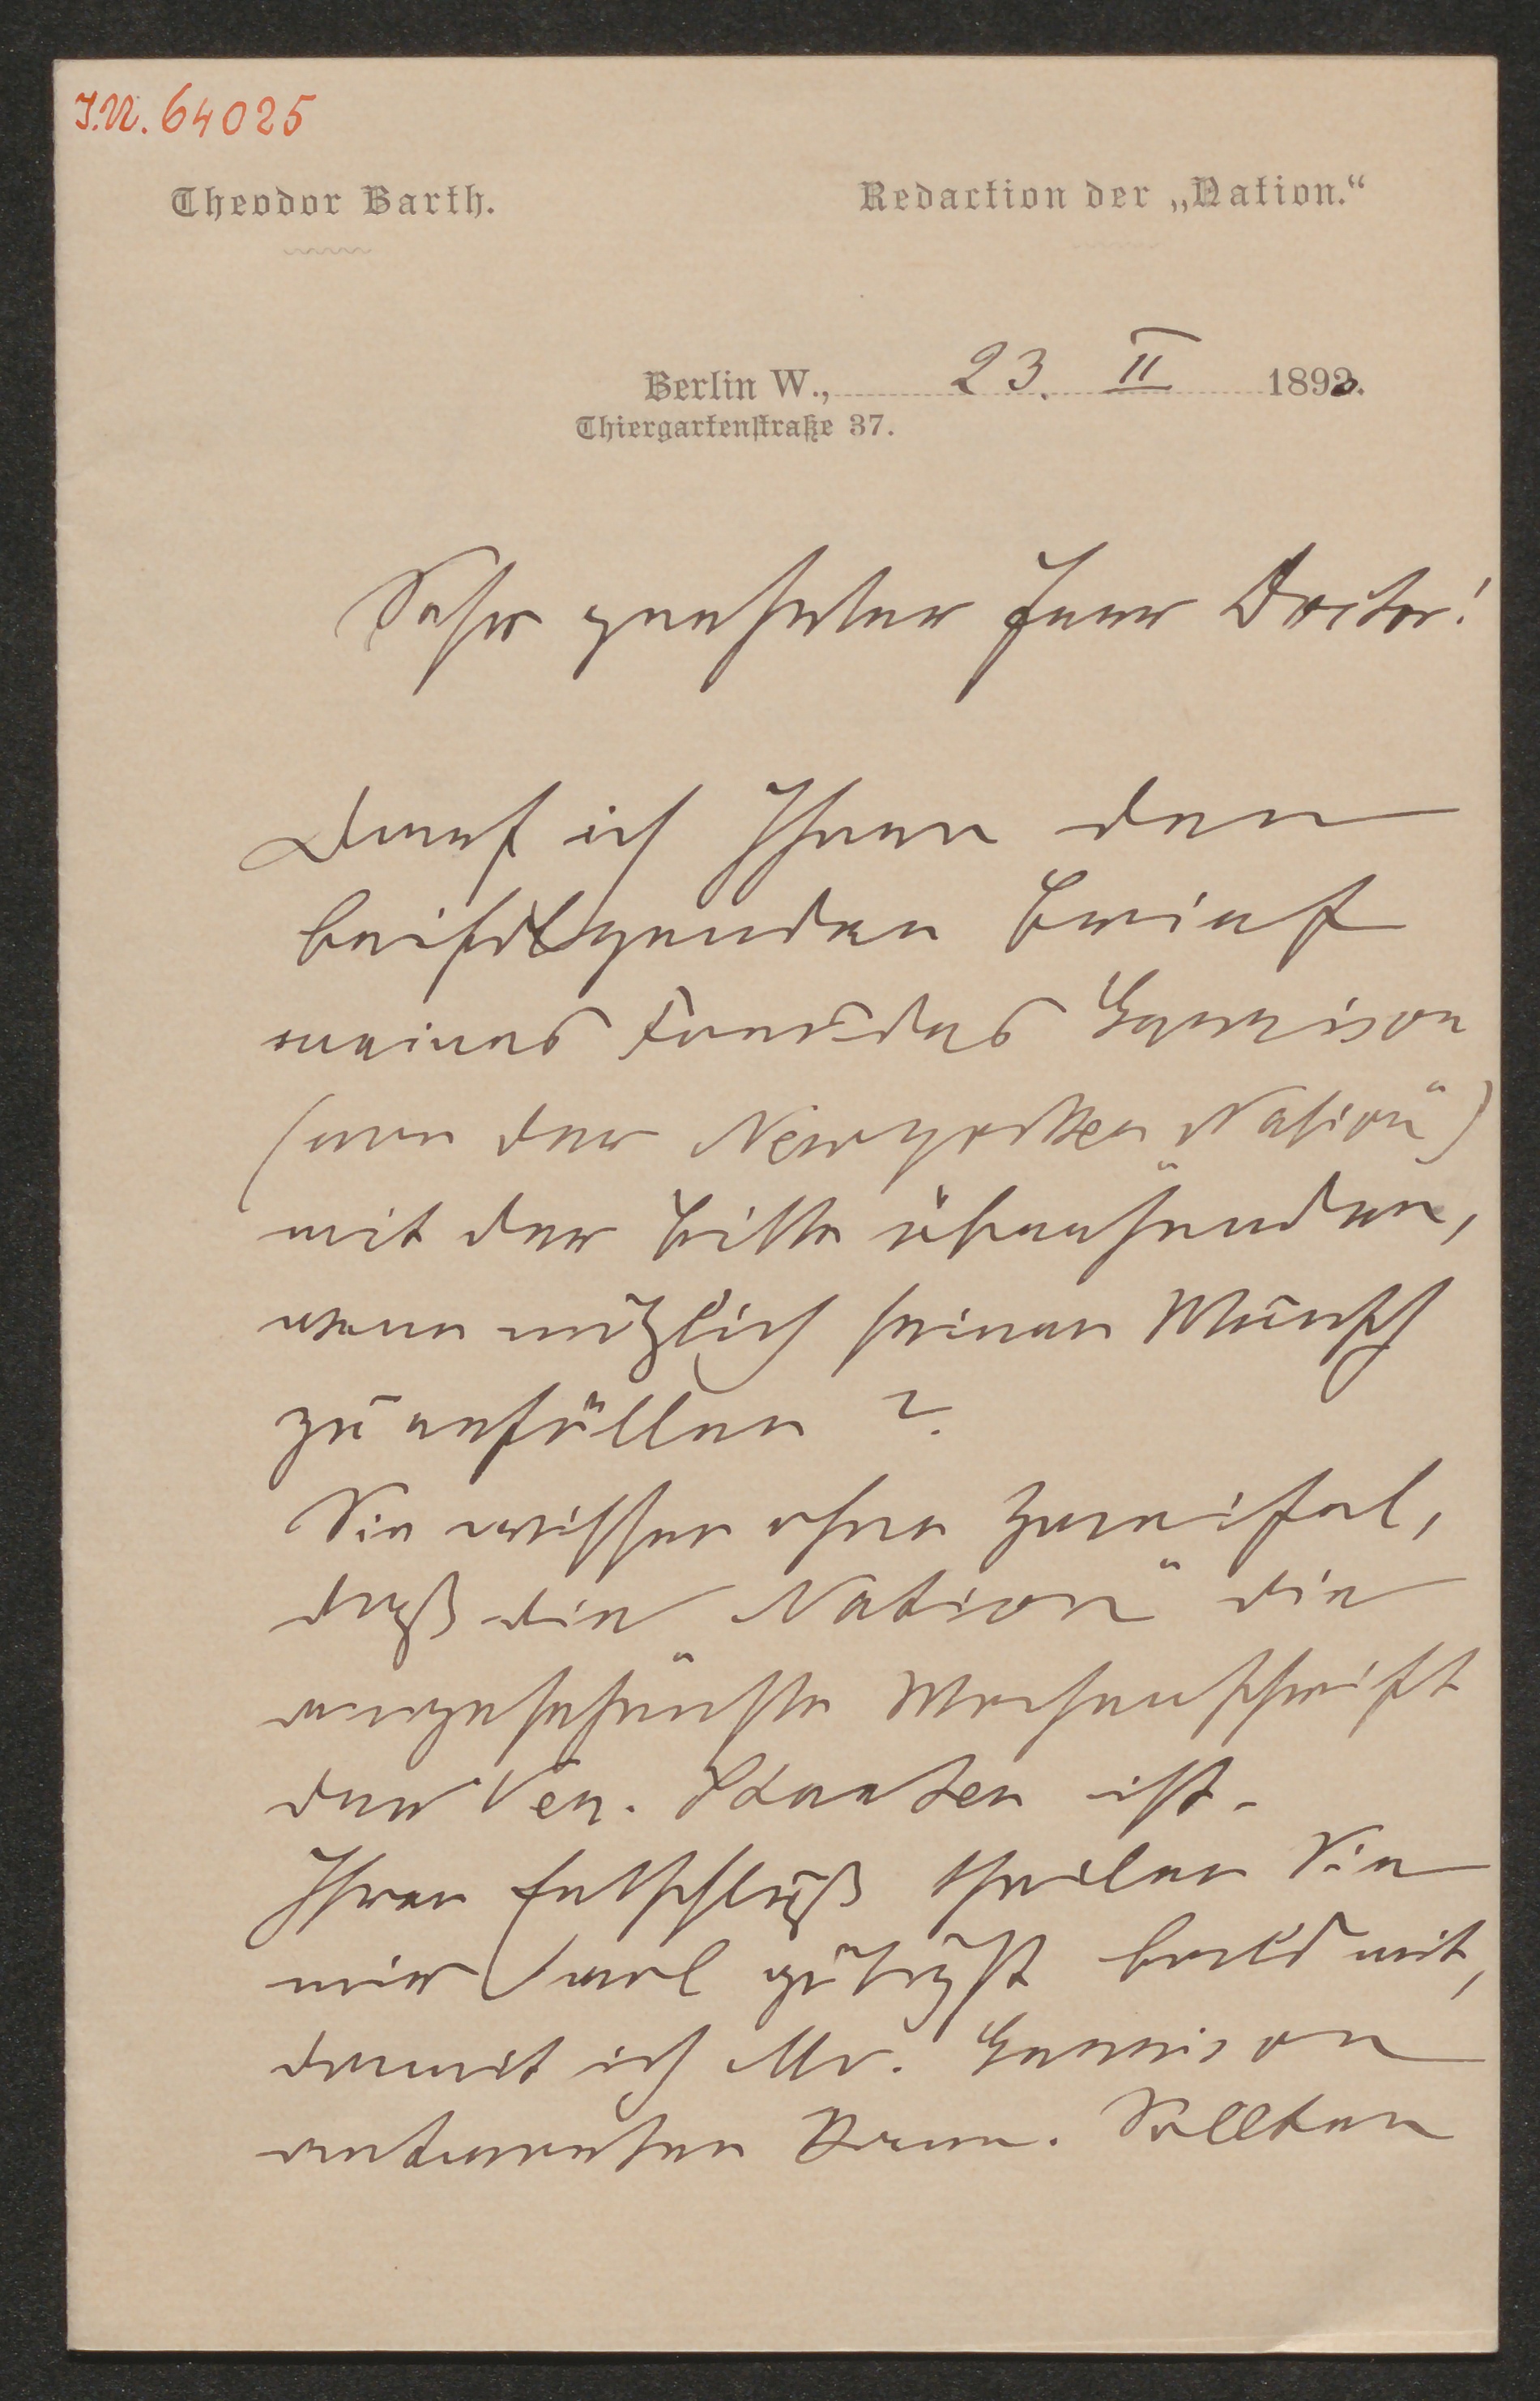 I.N. 64025
Theodor Barth.
Redaction der „Nation.“
Berlin W., 23. II 1893.
Thiergartenstraße 37.
Sehr geehrter Herr Doctor!
Darf ich Ihnen den
beifolgenden Brief
meines Freundes Garrison
(von der Newyorker „Nation“)
mit der Bitte übersenden,
wenn möglich seinen Wunsch
zu erfüllen?
Sie wissen ohne Zweifel,
daß die „Nation“ die
angesehenste Wochenschrift
der Ver. Staaten ist.
Ihren Entschluß theilen Sie
mir wol gütigst bald mit,
damit ich Mr. Garrison
antworten kann. Sollten